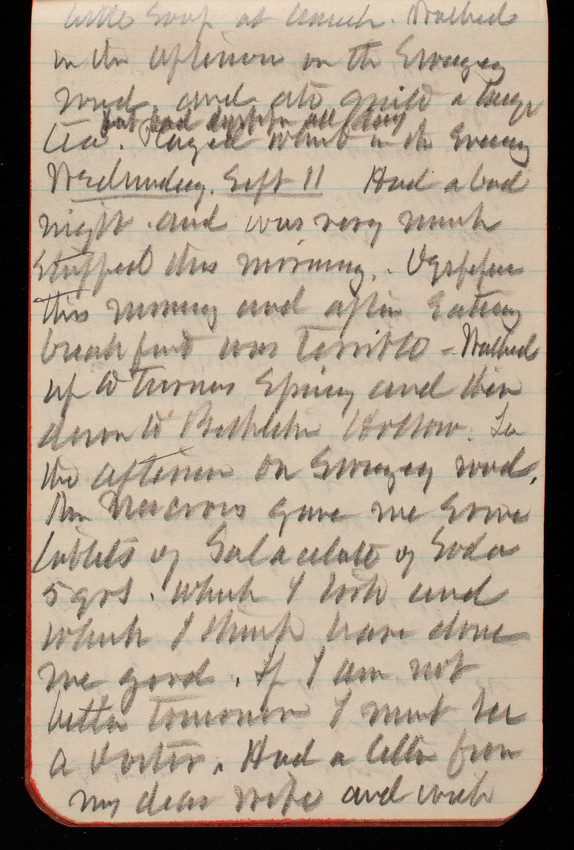 little soup at lunch. Walked
in the afternoon on the
road, and ate quite a large
but had dyspepsia all day
tea. Played whist in the evening
Wednesday. Sept 11 Had a bad
night and was very much
stuffed this morning. Dyspepsia
this morning and after eating
breakfast was terrible - Walked
up to Turners Spring and then
down to Bethlehem Hollow. In
the afternoon on road.
gave me some
tablets of of Soda
5 grs. which I took and
which I think have done
me good. If I am not
better tomorrow I must see
a Doctor. Had a letter from
my dear wife and